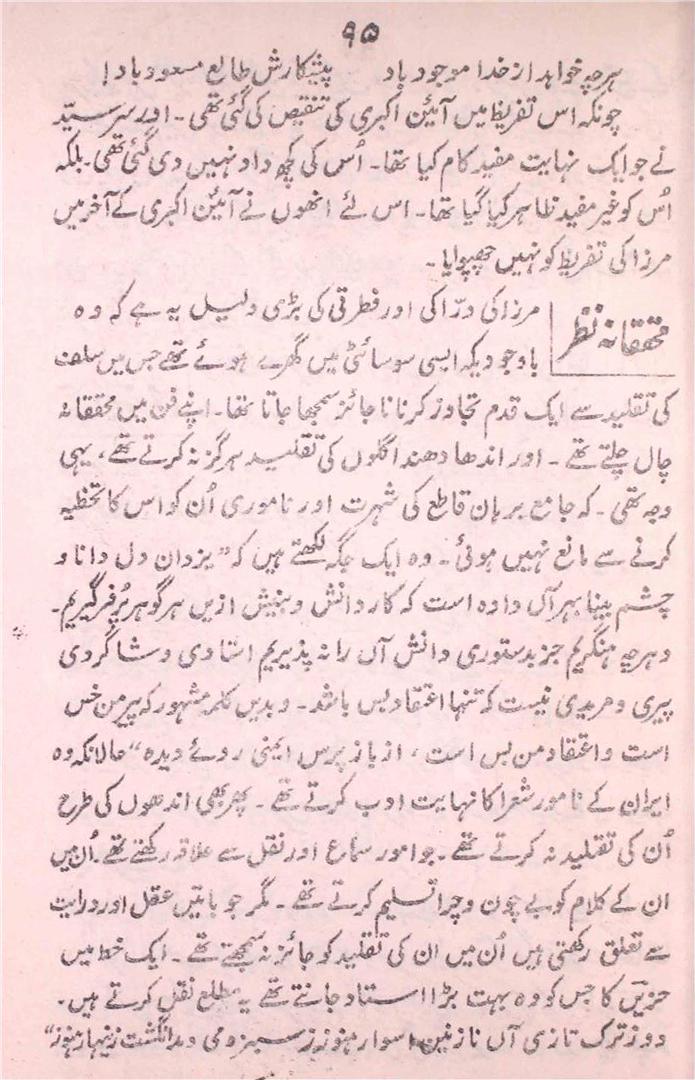 ۹۵
ہرچہ خواہد از خدا موجود باد پیشکارش طالع مسعود باد!
چونکہ اس تفریظ میں آئین اکبری کی تنقیص کی گئی تھی۔ اور سر سیّد
نے جو ایک نہایت مفید کام کیا تھا۔ اُس کی کچھ داد نہیں دی گئی تھی۔ بلکہ
اُس کو غیر مفید ظاہر کیا گیا تھا۔ اس لئے انھوں نے آئین اکبری کے آخر میں
مرزا کی تفریظ کو نہیں چھپوایا۔
محققانہ نظر
مرزا کی درّاکی اور فطرتی کی بڑی دلیل یہ ہے کہ وہ
باوجودیکہ ایسی سوسائٹی میں گھرے ہوئے تھے جس میں سلف
کی تقلید سے ایک قدم تجاوز کرنا ناجائز سمجھا جاتا تھا۔ اپنے فن میں محققانہ
چال چلتے تھے۔ اور اندھا دھند اگلوں کی تقلید ہرگز نہ کرتے تھے، یہی
وجہ تھی۔ کہ جامع برہان قاطع کی شہرت اور ناموری اُن کو اس کا تخطیہ
کرنے سے مانع نہیں ہوئی۔ وہ ایک جگہ لکھتے ہیں کہ "یزدان دل دانا و
چشم بینا بہر آں دادہ است کہ کار دانش و بینش ازیں ہر گوہر برگیریم۔
و ہرچہ بنگریم جز بدستوری دانش آں را نہ پذیریم استادی و شاگردی
پیری و مریدی نیست کہ تنہا اعتقاد بس باشد۔ و بدیں کلمہ مشہور کہ پیر من خس
است و اعتقاد من بس است، از باز پرس ایمنی روئے دیدہ" حالانکہ وہ
ایران کے نامور شعرا کا نہایت ادب کرتے تھے۔ پھر بھی اندھوں کی طرح
اُن کی تقلید نہ کرتے تھے۔ جو امور سماع اور نقل سے علاقہ رکھتے تھے۔ اُن میں
ان کے کلام کو بے چون و چرا تسلیم کرتے تھے۔ مگر جو باتیں عقل اور درایت
سے تعلق رکھتی ہیں اُن میں ان کی تقلید کو جائز نہ سمجھتے تھے۔ ایک خط میں
حزیںؔ کا جس کو وہ بہت بڑا استاد جانتے تھے یہ مطلع نقل کرتے ہیں۔
ز ترک تازی آں نازنین سوار ہنوز ز سبزہ می دمد انگشت زینہار ہنوز"